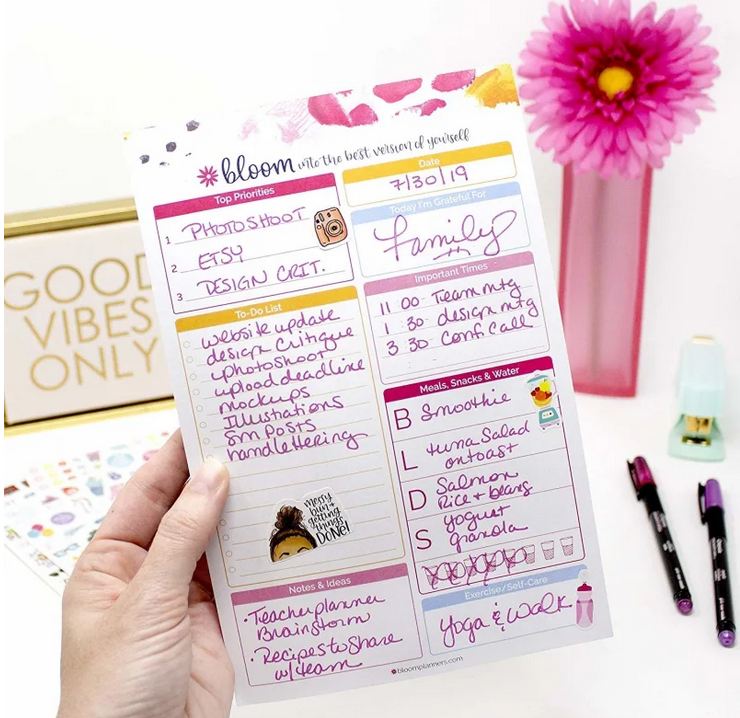 GOOD
VIBES
ONLY
bloom into the best version of yourself
Top Priorities
1 PHOTOSHOOT
2 ETSY
3 DESIGN CRIT.
Date
7/30/19
Today I'm Grateful For
Family
To-Do List
website update
design critique
photoshoot
upload deadline
mockups
Illustrations
SM Posts
handlettering
messy
bun +
getting
things
DONE!
Important Times
11 00 Team mtg
1 30 design mtg
3 30 Conf Call
Meals, Snacks & Water
B Smoothie
L tuna Salad
on toast
D Salmon
Rice + beans
S yogurt
granola
Notes & Ideas
• Teacher planner
Brainstorm
• Recipes to Share
w/ team
Exercise/Self-Care
Yoga & Walk
bloomplanners.com